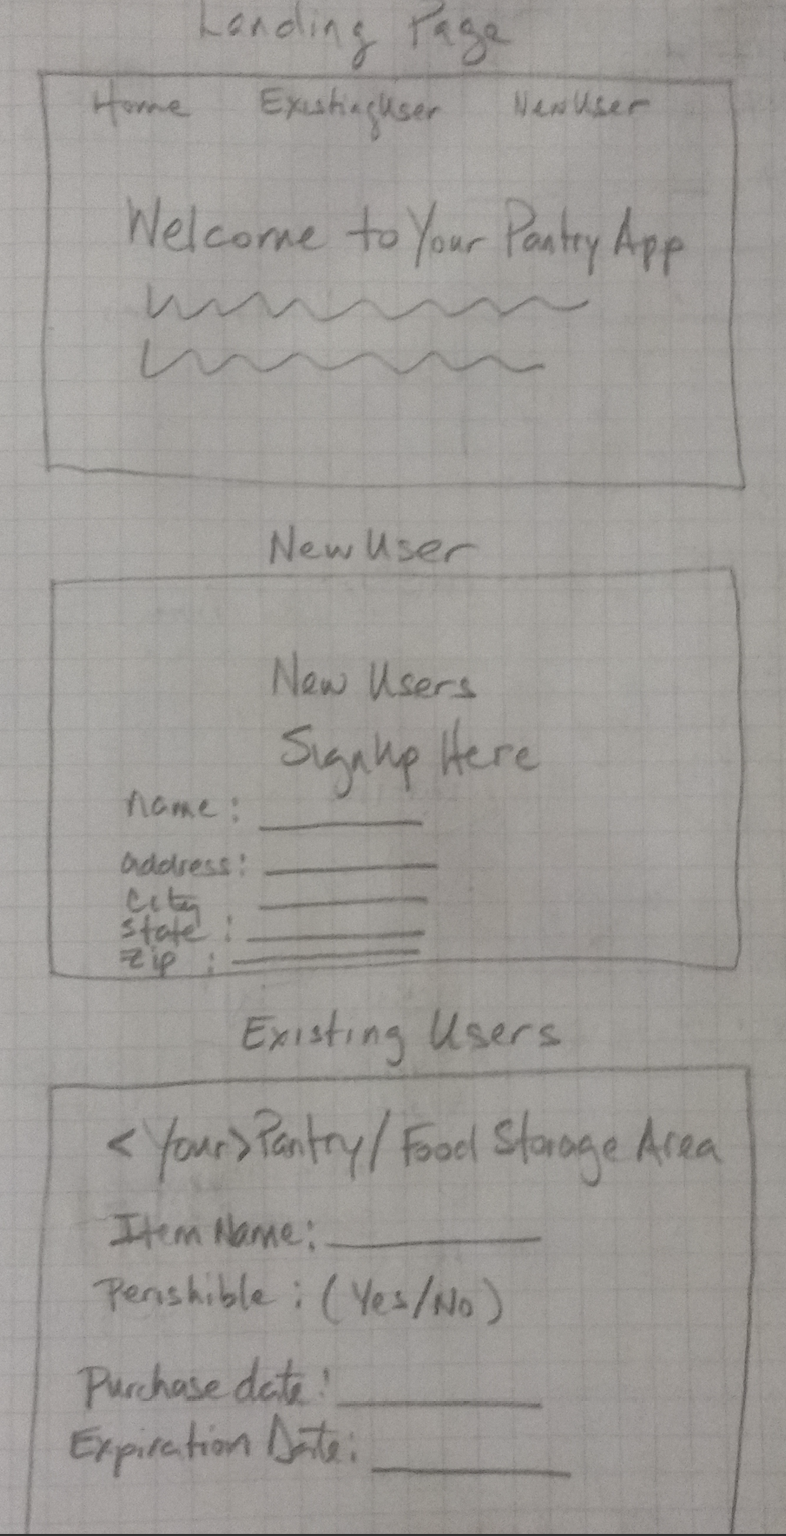 Landing Page
Home ExistingUser NewUser
Welcome to Your Pantry App
New User
New Users
SignUp Here
name:
address:
City
state :
zip :
Existing Users
<Your> Pantry/Food Storage Area
Item Name:
Perishible : (Yes/No)
Purchase date:
Expiration Date: